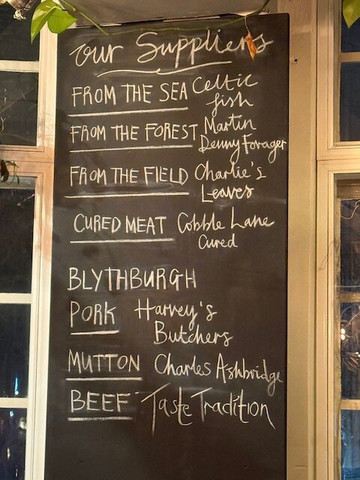 our Suppliers
FROM THE SEA Celtic
fish
FROM THE FOREST Martin
Denny forager
FROM THE FIELD Charlie's
Leaves
CURED MEAT Cobble Lane
Cured
BLYTHBURGH
PORK Harvey's
Butchers
MUTTON Charles Ashbridge
BEEF Taste Tradition